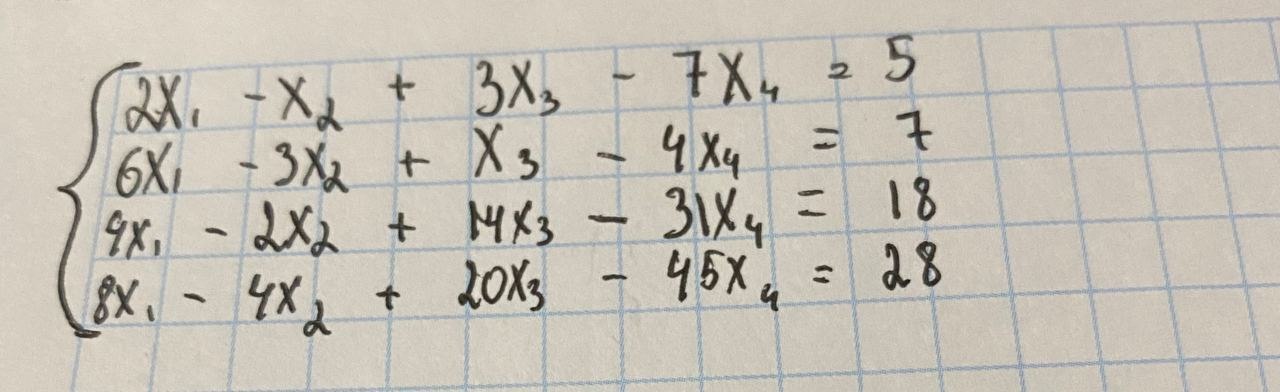 2x₁ - x₂ + 3x₃ - 7x₄ = 5
6x₁ - 3x₂ + x₃ - 4x₄ = 7
4x₁ - 2x₂ + 14x₃ - 31x₄ = 18
8x₁ - 4x₂ + 20x₃ - 45x₄ = 28